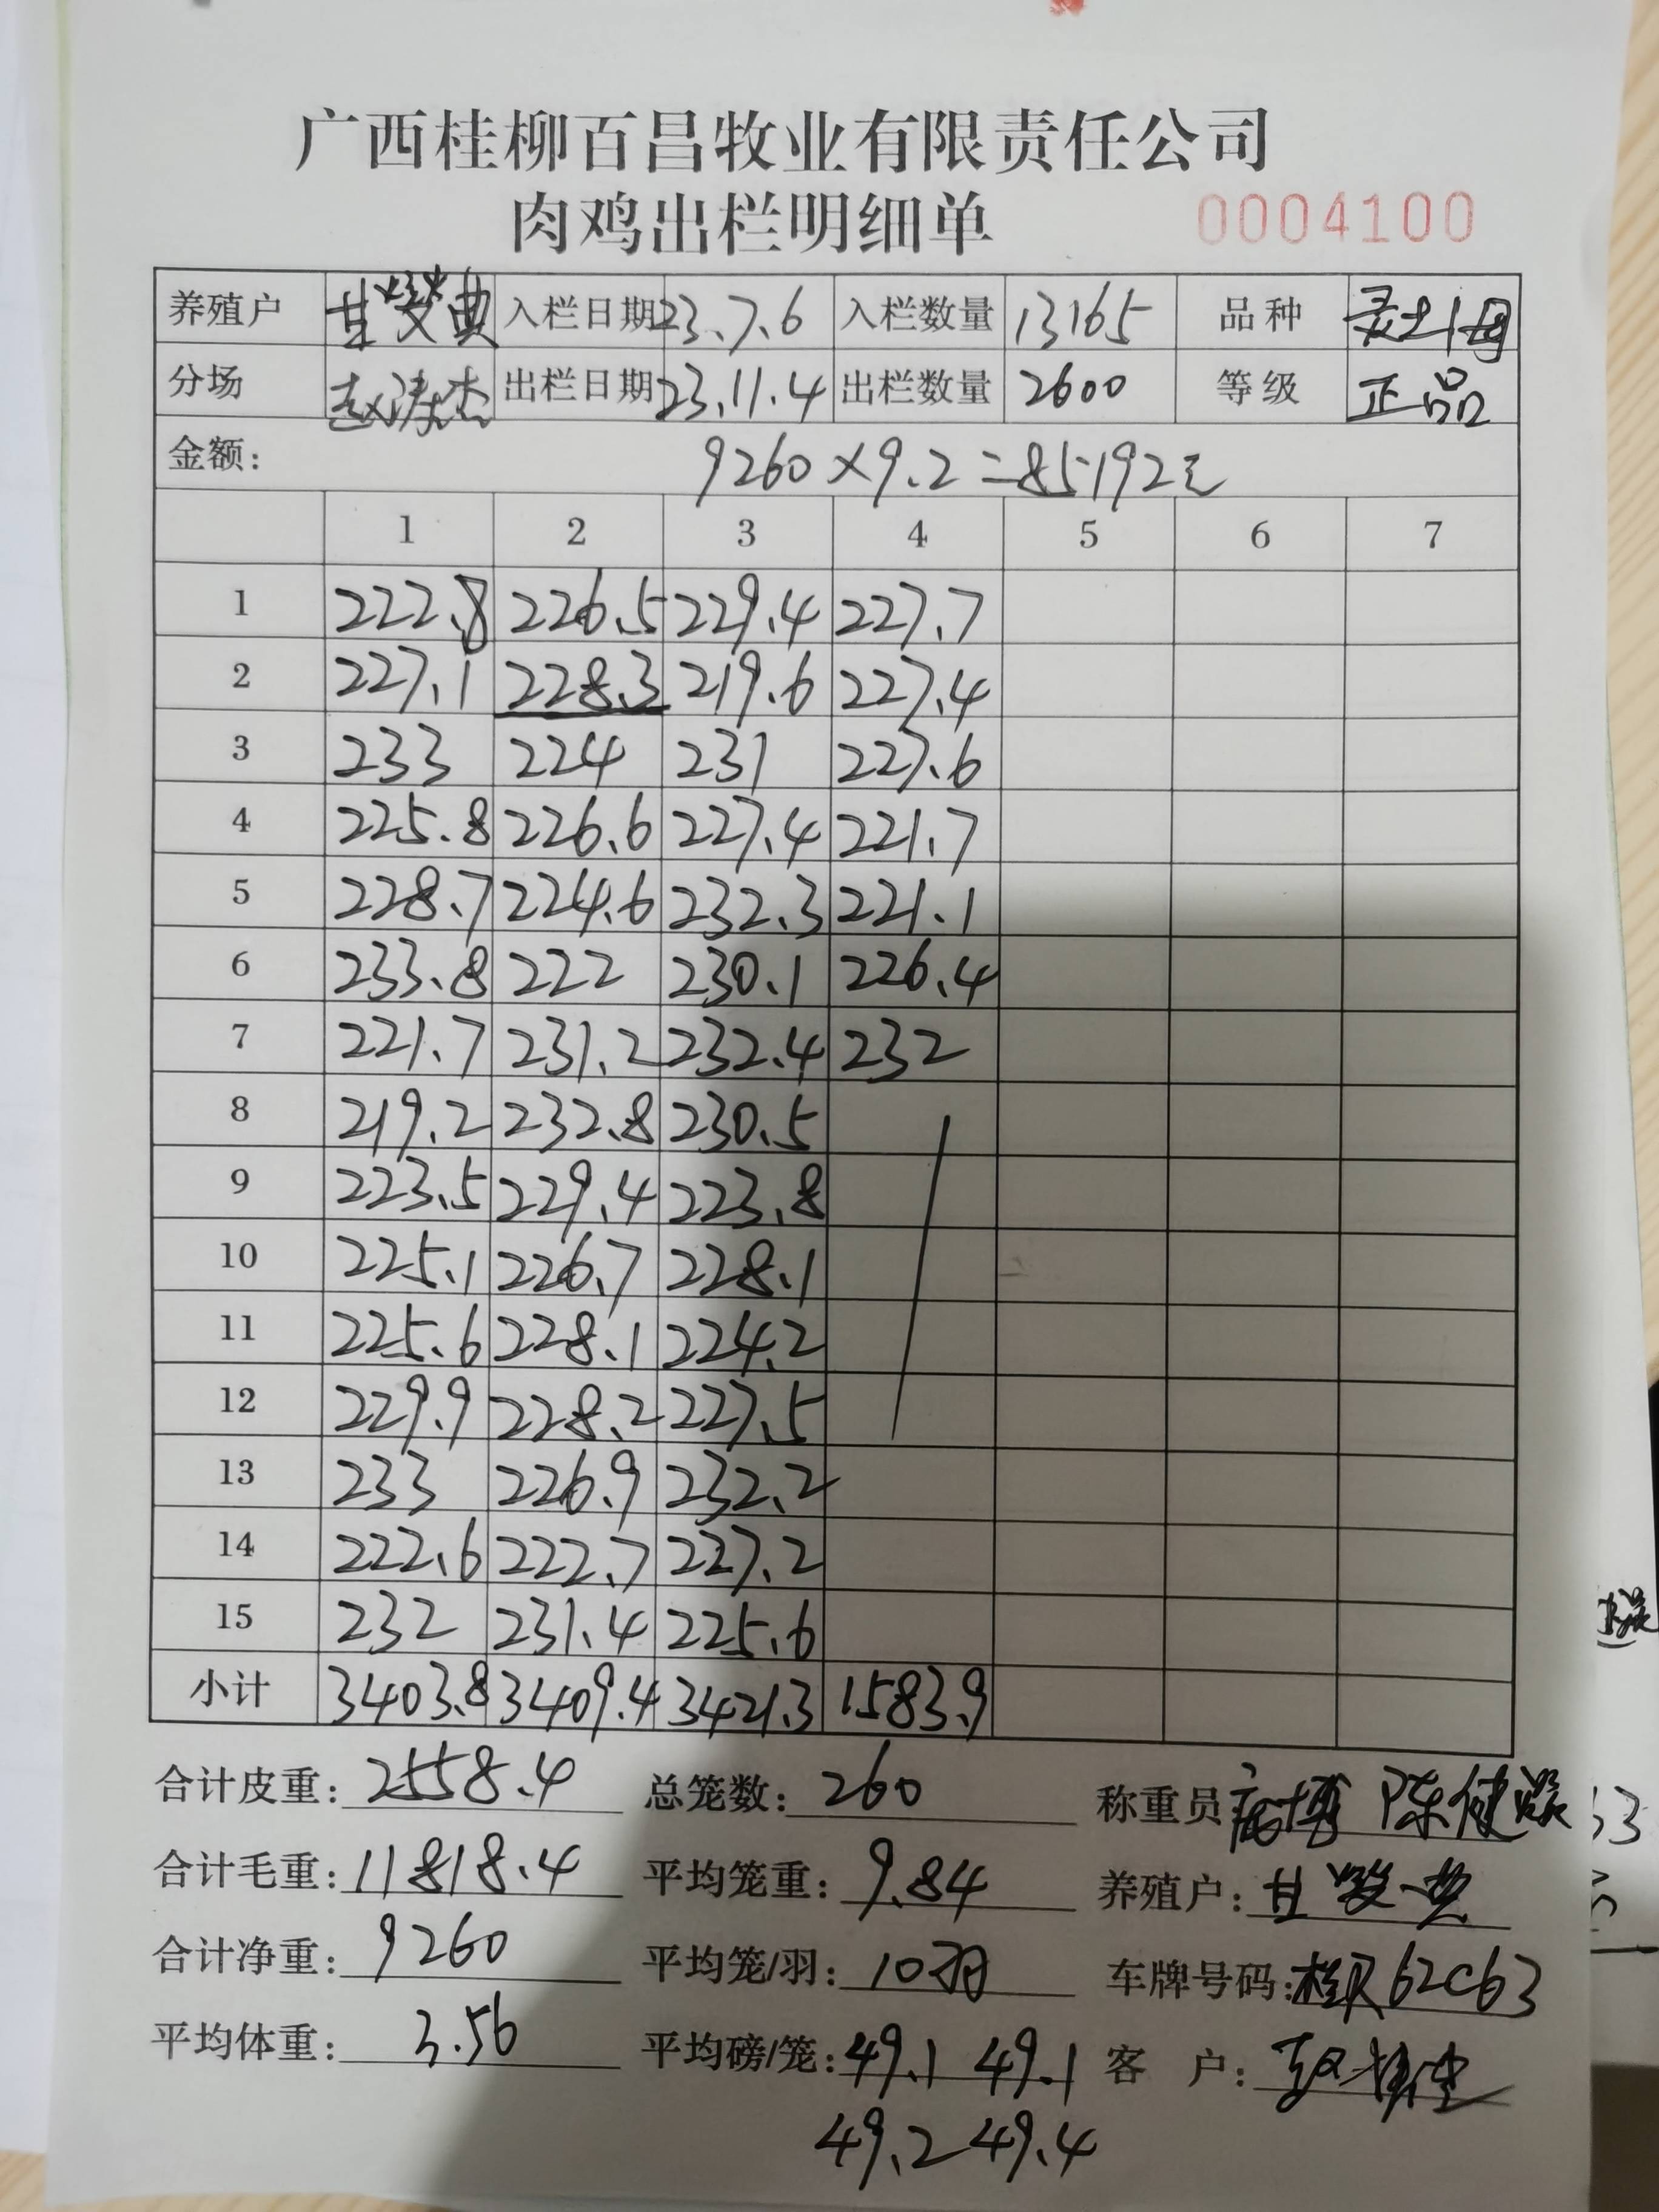 广西桂柳百昌牧业有限责任公司
肉鸡出栏明细单 0004100
养殖户 甘 典 入栏日期 23.7.6 入栏数量 13165 品种
分场 赵 杰 出栏日期 23.11.4 出栏数量 2600 等级 正品
金额: 9260×9.2=85192元
1 2 3 4 5 6 7
1 222.8 226.5 229.4 227.7
2 227.1 228.3 219.6 227.4
3 233 224 231 227.6
4 225.8 226.6 227.4 221.7
5 228.7 224.6 232.3 221.1
6 233.8 222 230.1 226.4
7 221.7 231.2 232.4 232
8 219.2 232.8 230.5
9 223.5 229.4 223.8
10 225.1 226.7 228.1
11 225.6 228.1 224.2
12 229.9 228.2 227.5
13 233 226.9 232.2
14 222.6 222.7 227.2
15 232 231.4 225.6
小计 3403.8 3409.4 3421.3 1583.9
合计皮重: 2558.4 总笼数: 260 称重员: 陈健
合计毛重: 11818.4 平均笼重: 9.84 养殖户: 甘 典
合计净重: 9260 平均笼/羽: 10羽 车牌号码: 桂R62C63
平均体重: 3.56 平均磅/笼: 49.1 49.1 客 户:
49.2 49.4